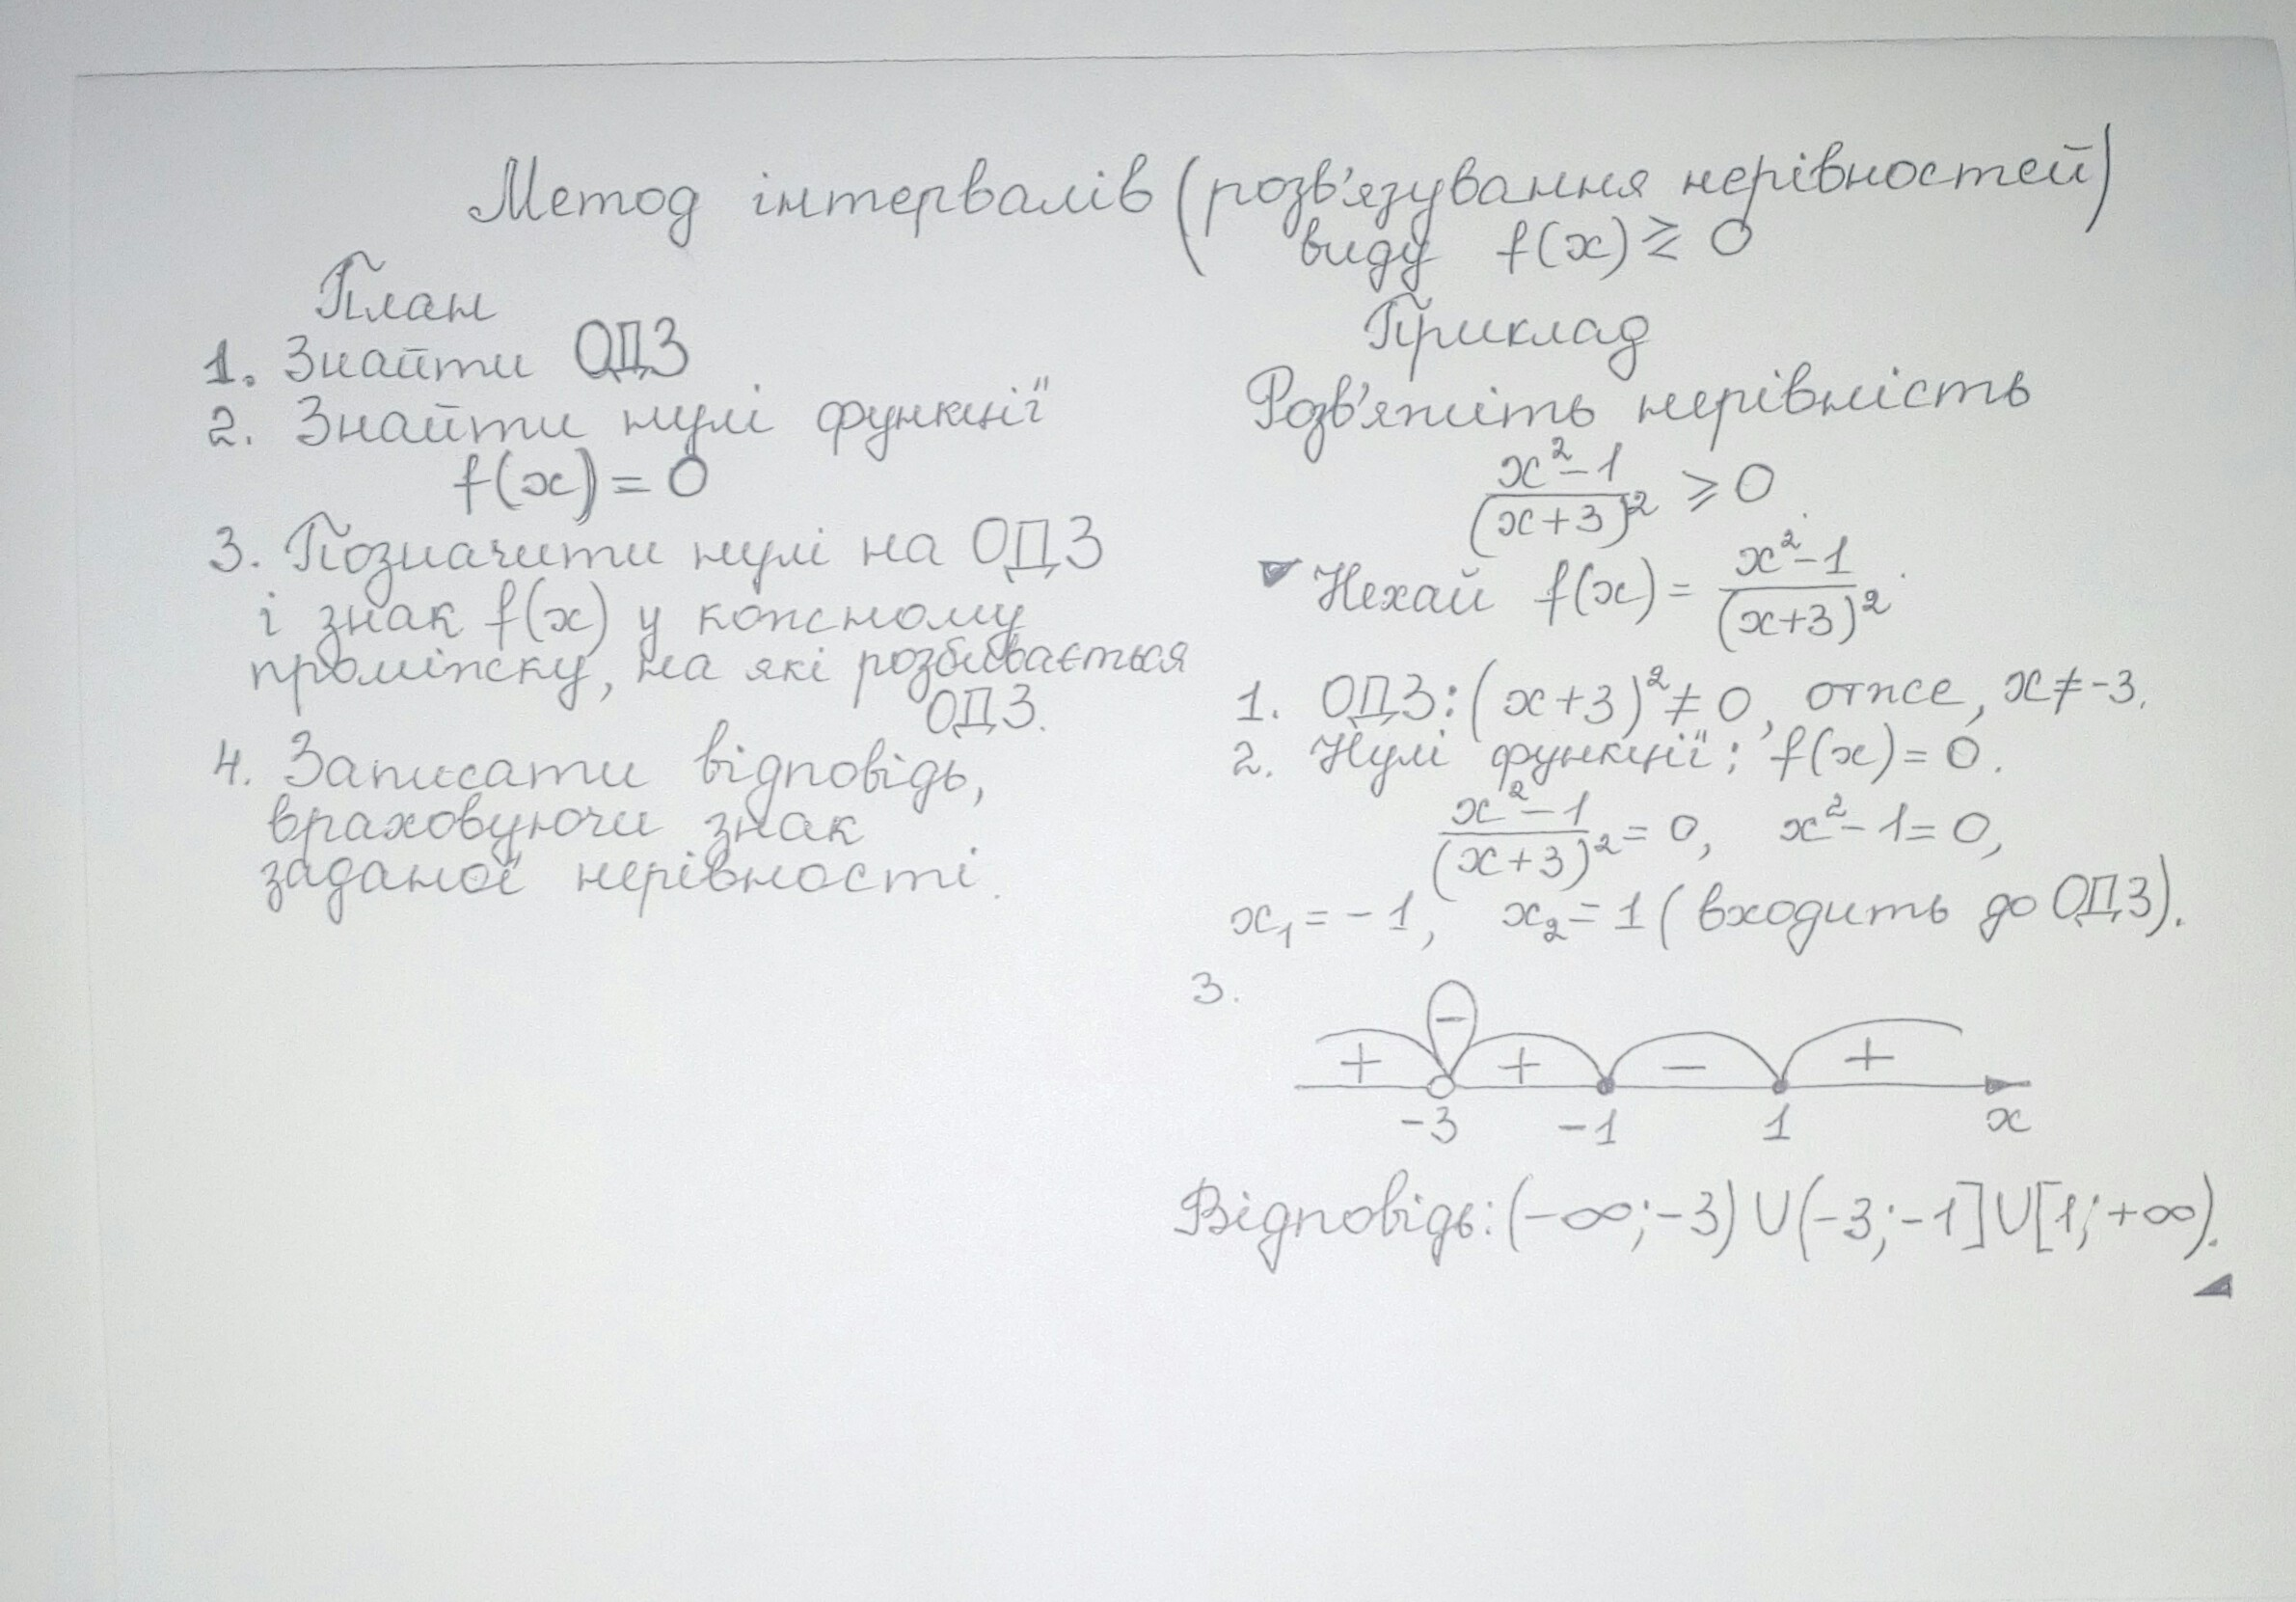 Метод інтервалів (розв'язування нерівностей)
виду f(x) ≷ 0
План
1. Знайти ОДЗ
2. Знайти нулі функції
f(x) = 0
3. Позначити нулі на ОДЗ
і знак f(x) у кожному
проміжку, на які розбивається
ОДЗ.
4. Записати відповідь,
враховуючи знак
заданої нерівності.
Приклад
Розв'яжіть нерівність
(x²-1)/(x+3)² ⩾ 0.
Нехай f(x) = (x²-1)/(x+3)².
1. ОДЗ: (x+3)² ≠ 0, отже, x ≠ -3.
2. Нулі функції: f(x) = 0.
(x²-1)/(x+3)² = 0, x²-1 = 0,
x₁ = -1, x₂ = 1 (входить до ОДЗ).
3.
+ - + - +
-3 -1 1 x
Відповідь: (-∞; -3) ∪ (-3; -1] ∪ [1; +∞).